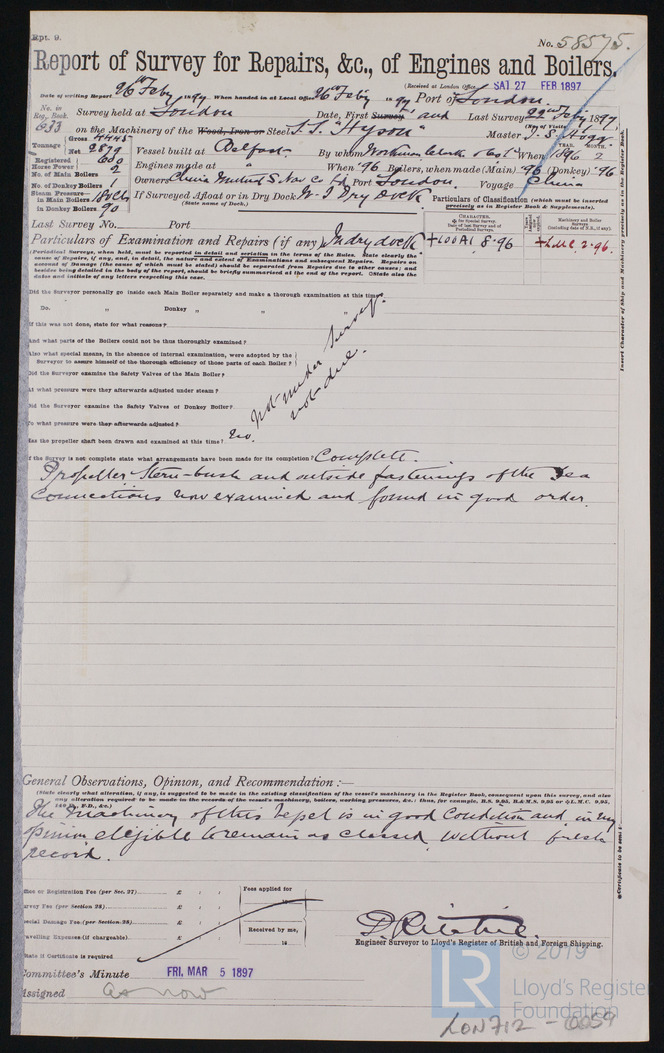 Rpt. 9.
No. 58575.
Report of Survey for Repairs, &c., of Engines and Boilers.
(Received at London Office, SAT 27 FEB 1897
Date of writing Report 26th Feby 1897 When handed in at Local Office 26th Feby 1897 Port of London
No. in Reg. Book. 633 Survey held at London Date, First Survey and Last Survey 22nd Feby 1897
(No. of Visits
on the Machinery of the Wood, Iron or Steel S.S. "Hyson" Master T. S. Hogg
Tonnage Gross 4445 Net 2879
Vessel built at Belfast By whom Workman Clark & Co Ld When 1896 2
YEAR. MONTH.
Registered Horse Power 600
Engines made at " When '96 Boilers, when made (Main) '96 (Donkey) '96
No. of Main Boilers 2
No. of Donkey Boilers 1
Owners China Mutual S. Nav. Co Ld Port London Voyage China
Steam Pressure— in Main Boilers
in Donkey Boilers 90
If Surveyed Afloat or in Dry Dock W. I. Dry Dock
(State name of Dock.)
Particulars of Classification (which must be inserted precisely as in Register Book & Supplements).
Last Survey No. Port
CHARACTER.
✠ for Special Survey.
Date of last Survey and of Periodical Surveys.
Machinery and Boiler Surveys
(including date of N.B., if any).
Particulars of Examination and Repairs (if any) In dry dock
+100A1 8.96 +LMC 2.96.
(Periodical Surveys, when held, must be reported in detail and seriatim in the terms of the Rules. State clearly the
cause of Repairs, if any, and, in detail, the nature and extent of Examinations and subsequent Repairs. Repairs on
account of Damage (the cause of which must be stated) should be separated from Repairs due to other causes; and
besides being detailed in the body of the report, should be briefly summarised at the end of the report. State also the
dates and initials of any letters respecting this case.
Did the Surveyor personally go inside each Main Boiler separately and make a thorough examination at this time?
Do. " Donkey " " "
If this was not done, state for what reasons?
And what parts of the Boilers could not be thus thoroughly examined?
Also what special means, in the absence of internal examination, were adopted by the
Surveyor to assure himself of the thorough efficiency of those parts of each Boiler?
Did the Surveyor examine the Safety Valves of the Main Boiler?
At what pressure were they afterwards adjusted under steam?
Did the Surveyor examine the Safety Valves of Donkey Boiler?
To what pressure were they afterwards adjusted?
not under Survey.
not due.
Has the propeller shaft been drawn and examined at this time? No.
If the Survey is not complete state what arrangements have been made for its completion? Complete.
Propeller Stern-bush and outside fastenings of the Sea
Connections now examined and found in good order.
General Observations, Opinion, and Recommendation:—
(State clearly what alteration, if any, is suggested to be made in the existing classification of the vessel's machinery in the Register Book, consequent upon this survey, and also
any alteration required to be made in the records of the vessel's machinery, boilers, working pressures, &c.: thus, for example, B.S. 9,95, B.& M.S. 9,95 or ✠L.M.C. 9,95,
140 lb., F.D., &c.)
The Machinery of this vessel is in good Condition and in my
opinion elegible to remain as classed without fresh
record.
Office or Registration Fee (per Sec. 27) £
Survey Fee (per Section 28) £
Special Damage Fee (per Section 28) £
Travelling Expenses (if chargeable) £
State if Certificate is required
Fees applied for
18
Received by me,
18
D. Ritchie.
Engineer Surveyor to Lloyd's Register of British and Foreign Shipping.
Committee's Minute FRI. MAR 5 1897
Assigned as now
Insert Character of Ship and Machinery precisely as in the Register Book.
Certificate to be sent to
© 2019
LR
Lloyd's Register
Foundation
LON712 - 0059